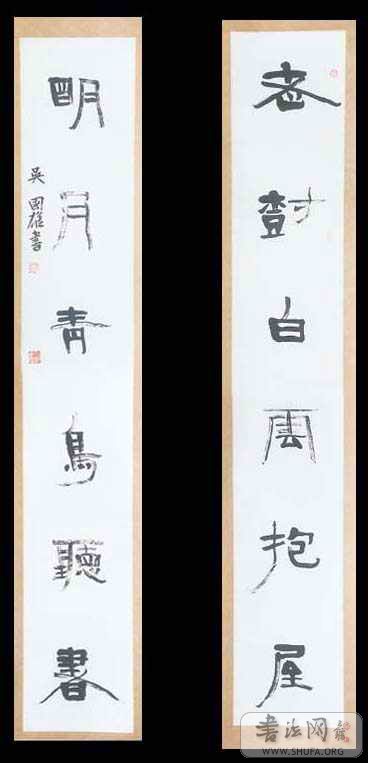 老樹白雲抱屋
明月青鳥聽書
吳國雄書
书法网
WWW.SHUFA.ORG